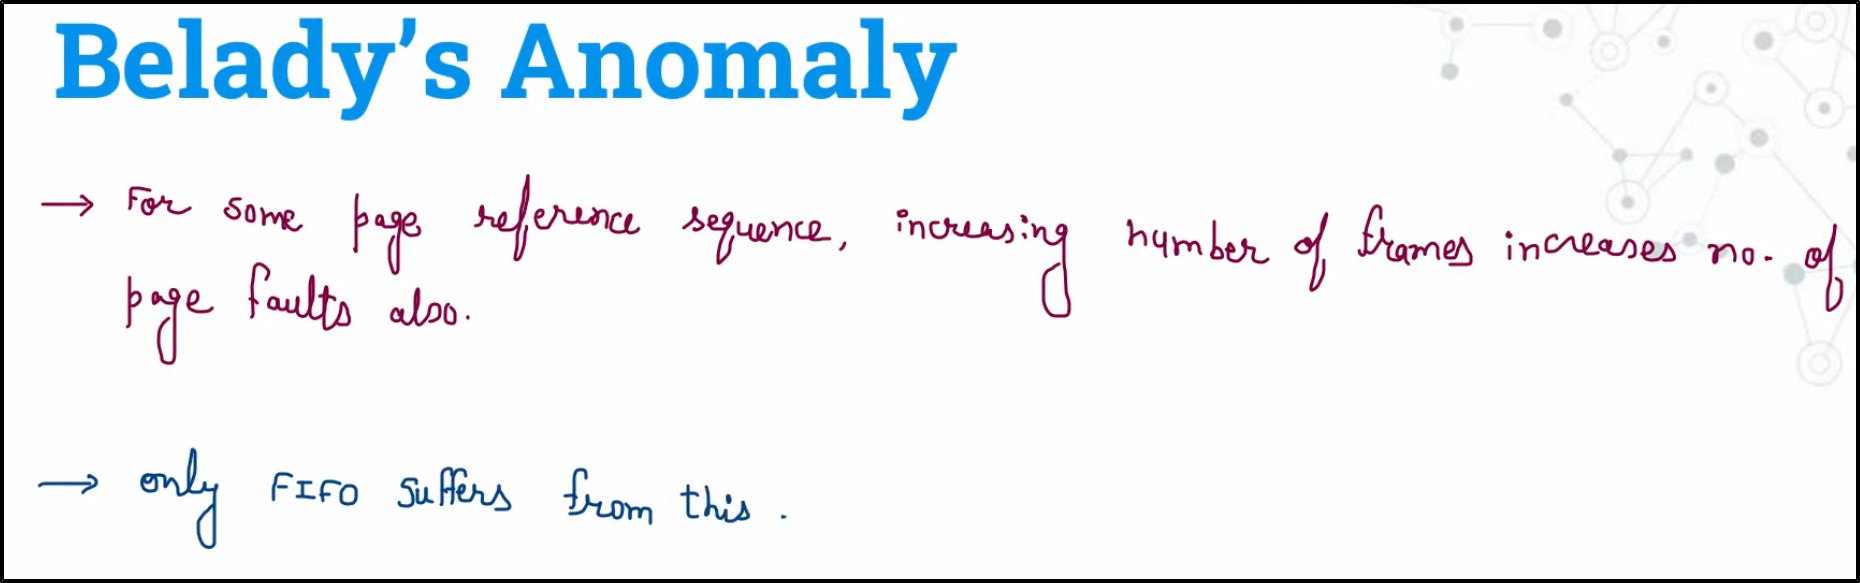 Belady's Anomaly
→ For some page reference sequence, increasing number of frames increases no. of
page faults also.
→ only FIFO suffers from this.